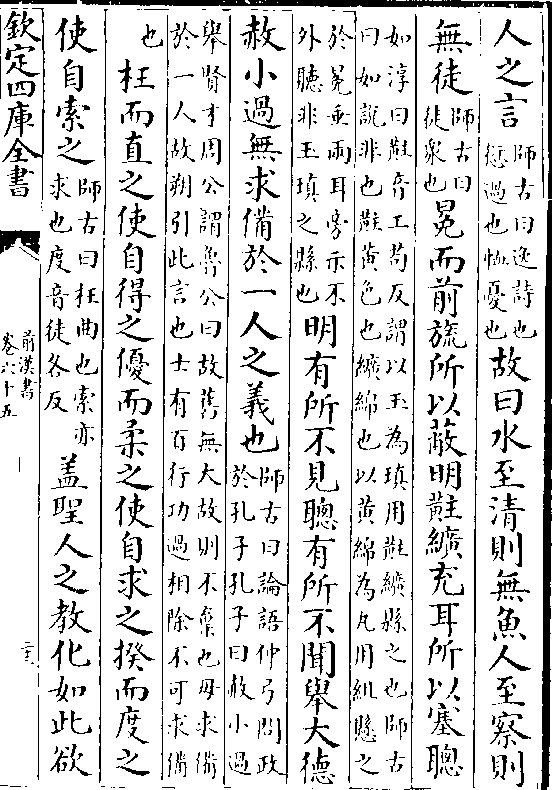 人之言師古曰逸詩也愆過也恤憂也故曰水至清則無魚人至察則
無徒師古曰徒衆也冕而前旒所以蔽明黈纊充耳所以塞聰
如淳曰黈音工苟反謂以玉為瑱用黈纊縣之也師古曰如說非也黈黄色也纊綿也以黄綿為丸用組懸之
於冕垂兩耳旁示不外聽非玉瑱之縣也明有所不見聰有所不聞舉大德
赦小過無求備於一人之義也師古曰論語仲弓問政於孔子孔子曰赦小過
舉賢才周公謂魯公曰故舊無大故則不棄也毋求備於一人故朔引此言也士有百行功過相除不可求備
也枉而直之使自得之優而柔之使自求之揆而度之
使自索之師古曰枉曲也索亦求也度音徒各反盖聖人之教化如此欲
欽定四庫全書
前漢書
卷六十五